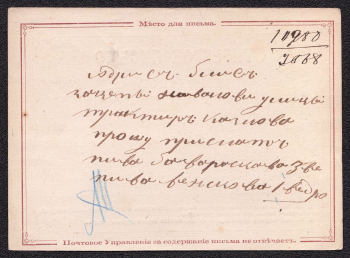 Мѣсто для письма.
10980
3068
Адрисъ близъ
зацепы улицы
трактиръ Козлова
прошу прислатъ
пива баварскава 3 ве
пива венскова 1 ведро
Почтовое Управленіе за содержаніе письма не отвѣчаетъ.